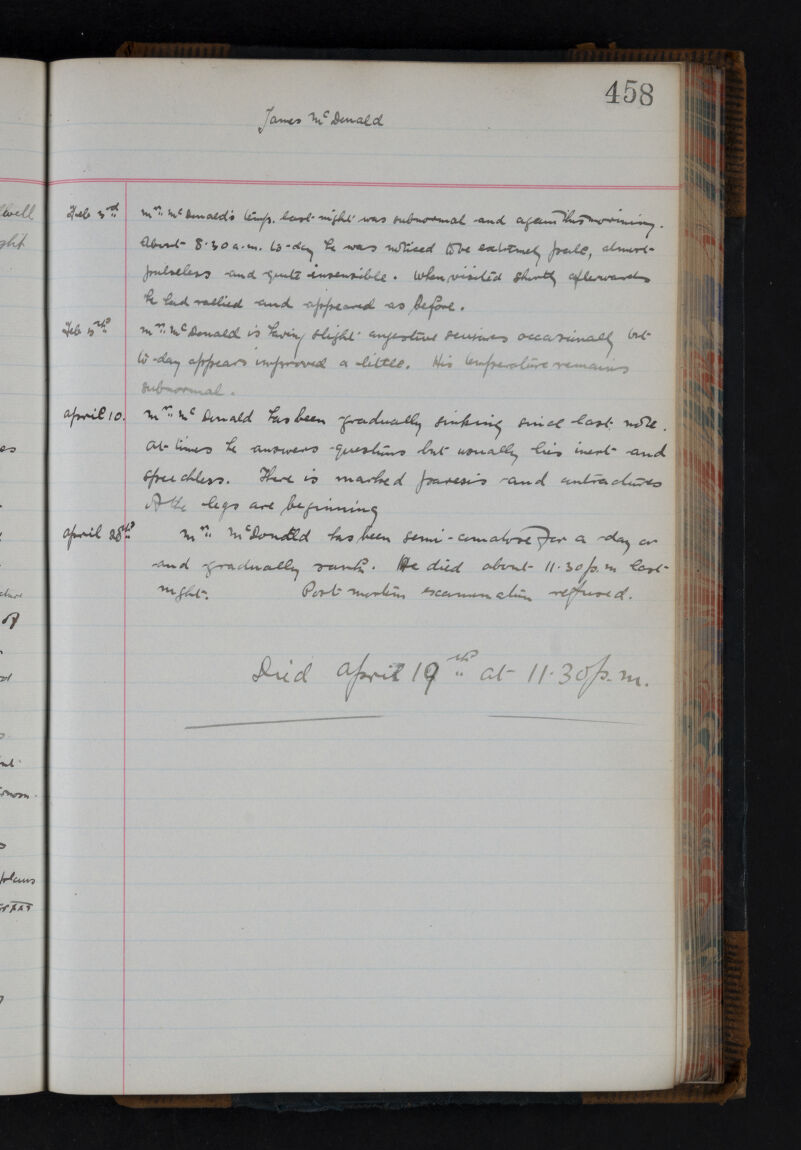 458
James McDonald
Feb 3rd Mr. McDonald's temp. last night was subnormal and again this morning.
About 8.30 a.m. to-day he was noticed to be extremely pale, almost
pulseless and quite insensible. When visited shortly afterwards
he had rallied and appeared as before.
Feb 5th Mr. McDonald is having slight congestive seizures occasionally but
to-day appears improved a little. His temperature remains
subnormal.
April 10. Mr. McDonald has been gradually sinking since last note.
At times he answers questions but usually lies inert and
speechless. There is marked paresis and contractures
of the legs are beginning
April 28th Mr. McDonald has been semi-comatose for a day or
and gradually sank. He died about 11.30 p.m last
night. Post mortem examination refused.
Died April 19th at 11.30 p.m.